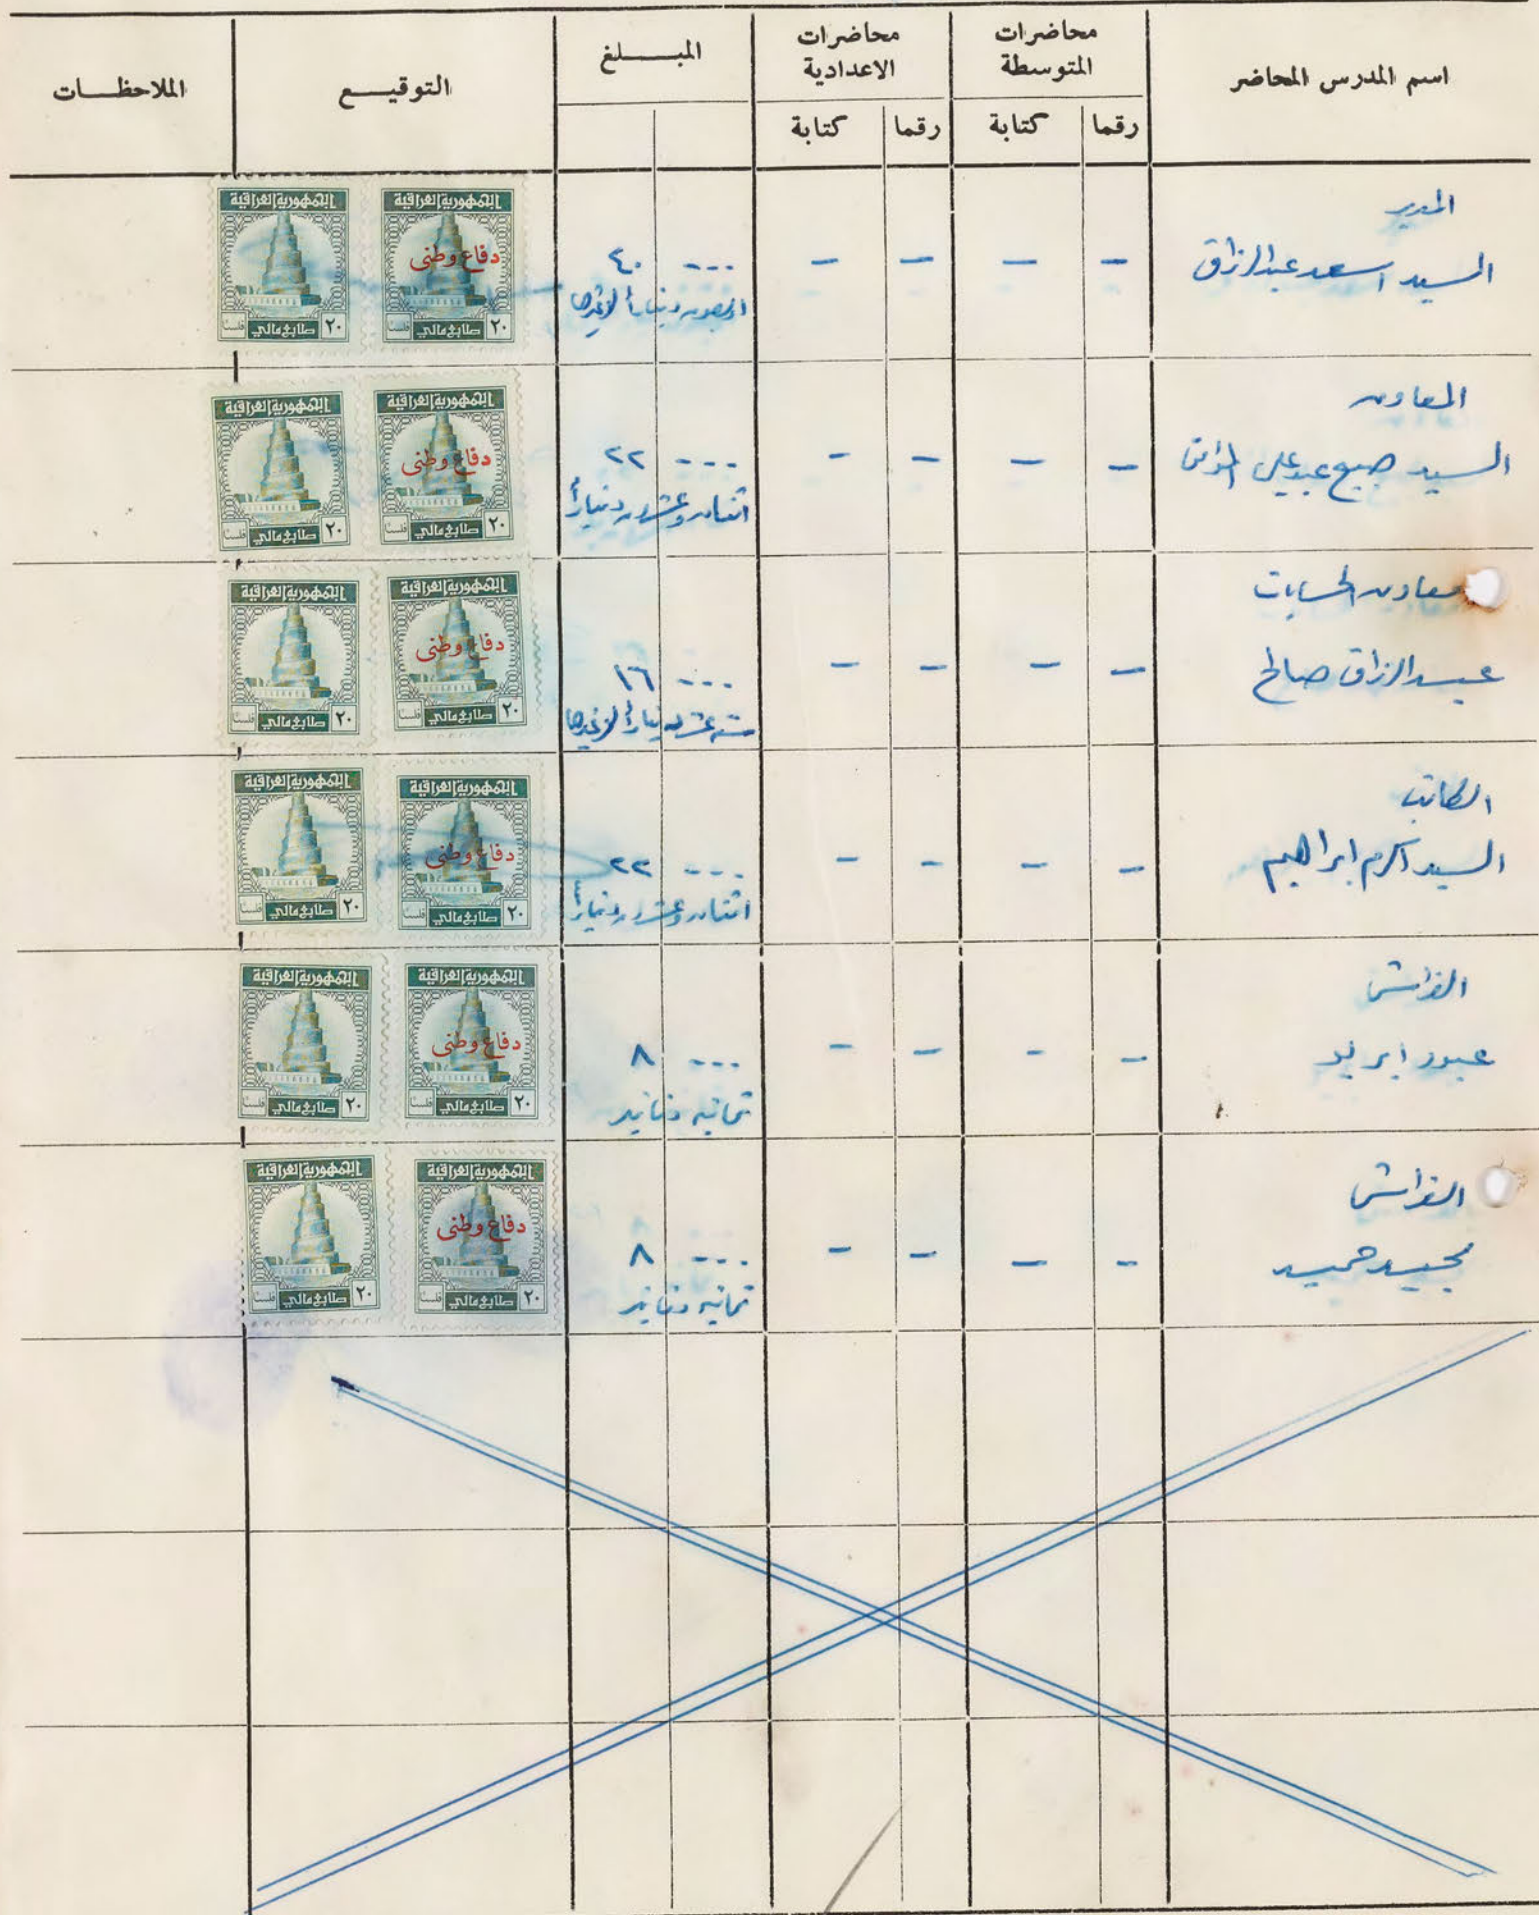 اسم المدرس المحاضر
محاضرات المتوسطة
محاضرات الاعدادية
المبـــلغ
التوقيـــع
الملاحظـــات
رقما
كتابة
رقما
كتابة
المدير
السيد اسعد عبدالرزاق
- - - -
--- ٤٠
اربعون ديناراً لاغيرها
الجمهورية العراقية
دفاع وطني
٢٠ طابع مالي فلسا
الجمهورية العراقية
٢٠ طابع مالي فلسا
المعاون
السيد صبيح عبد علي
- - - -
--- ٢٢
اثنان وعشرون ديناراً
الجمهورية العراقية
دفاع وطني
٢٠ طابع مالي فلسا
الجمهورية العراقية
٢٠ طابع مالي فلسا
معاون الحسابات
عبد الرزاق صالح
- - - -
--- ١٦
ستة عشر ديناراً لاغيرها
الجمهورية العراقية
دفاع وطني
٢٠ طابع مالي فلسا
الجمهورية العراقية
٢٠ طابع مالي فلسا
الكاتب
السيد اكرم ابراهيم
- - - -
--- ٢٢
اثنان وعشرون ديناراً
الجمهورية العراقية
دفاع وطني
٢٠ طابع مالي فلسا
الجمهورية العراقية
٢٠ طابع مالي فلسا
الفراش
- - - -
--- ٨
ثمانية دنانير
الجمهورية العراقية
دفاع وطني
٢٠ طابع مالي فلسا
الجمهورية العراقية
٢٠ طابع مالي فلسا
الفراش
مجيد حميد
- - - -
--- ٨
ثمانية دنانير
الجمهورية العراقية
دفاع وطني
٢٠ طابع مالي فلسا
الجمهورية العراقية
٢٠ طابع مالي فلسا